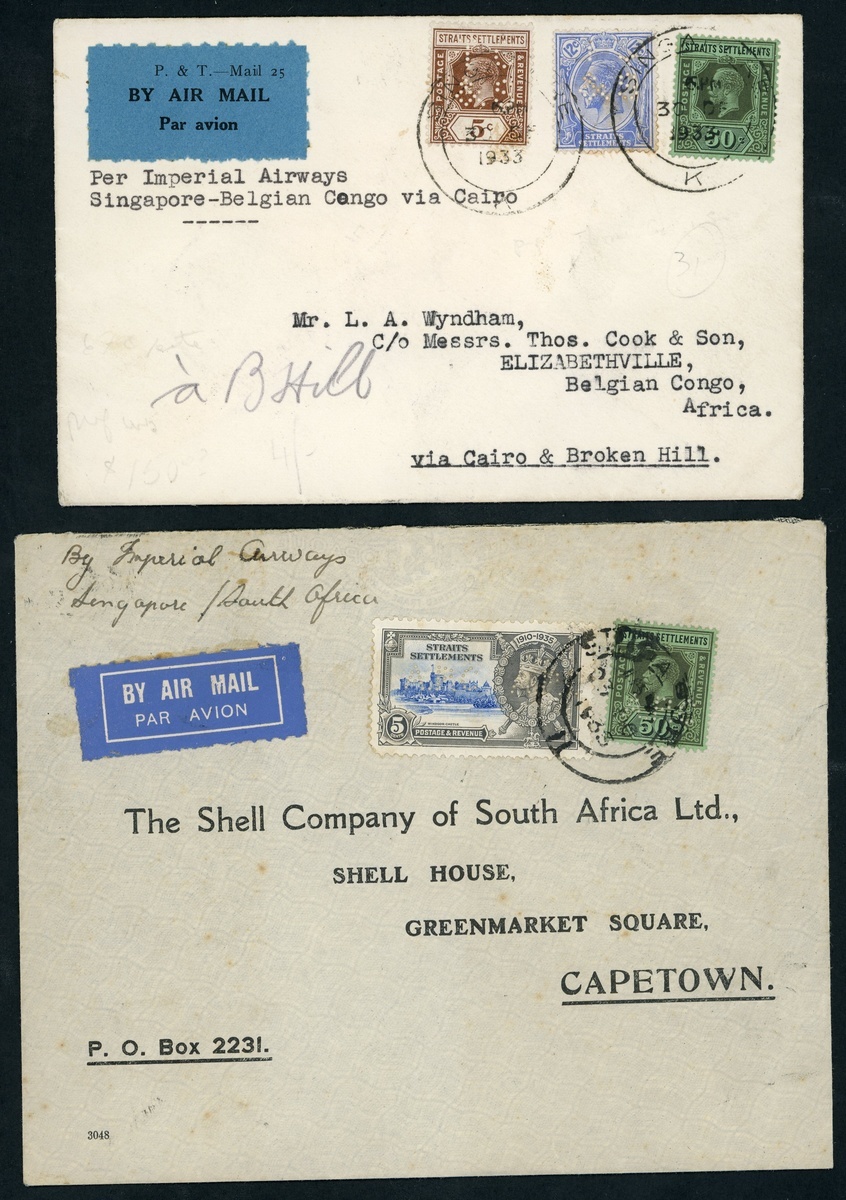 P. & T.—Mail 25
BY AIR MAIL
Par avion
STRAITS SETTLEMENTS
POSTAGE & REVENUE
5c
12c
STRAITS SETTLEMENTS
STRAITS SETTLEMENTS
POSTAGE & REVENUE
50c
1933
K
1933
K
Per Imperial Airways
Singapore-Belgian Congo via Cairo
------
Mr. L. A. Wyndham,
C/o Messrs. Thos. Cook & Son,
ELIZABETHVILLE,
Belgian Congo,
Africa.
à B Hill
4/-
via Cairo & Broken Hill.
By Imperial Airways
Singapore / South Africa
BY AIR MAIL
PAR AVION
1910-1935
STRAITS
SETTLEMENTS
WINDSOR CASTLE
5
CENTS
POSTAGE & REVENUE
STRAITS SETTLEMENTS
POSTAGE & REVENUE
50c
The Shell Company of South Africa Ltd.,
SHELL HOUSE,
GREENMARKET SQUARE,
CAPETOWN.
P. O. Box 2231.
3048